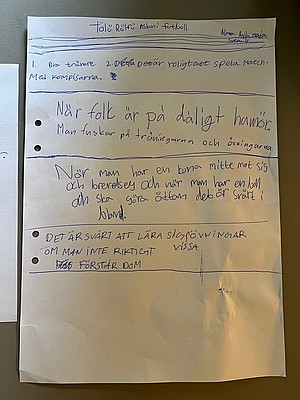 1. Bra tränare. 2. Det är roligt att spela match.
Med kompisarna.
När folk är på dåligt humör.
Man fuskar på träningarna och övningarna
När man har en kona mitte mot sig
och bredvid sig och när man har en boll
och ska göra åttan det är svårt i
DET ÄR SVÅRT ATT LÄRA SIG ÖVNINGAR
OM MAN INTE RIKTIGT VISSA
FÖRSTÅR DOM